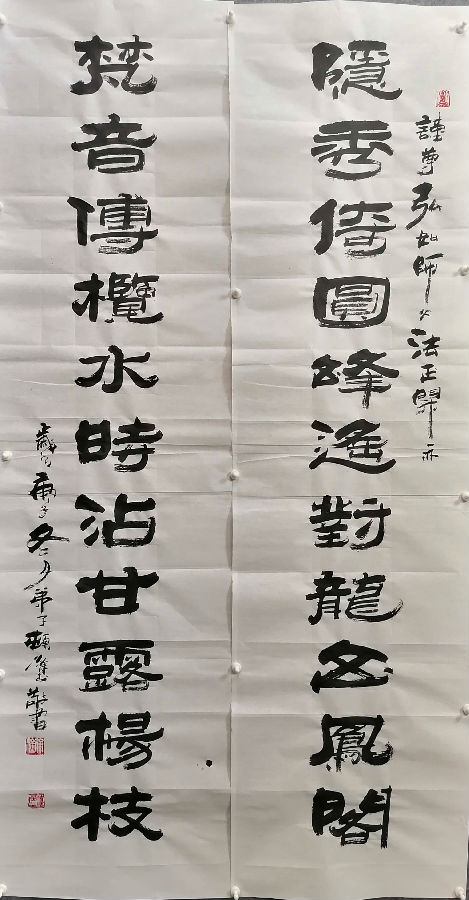 謹尊弘如師公法正
隱秀倚圓峰遙對龍鳳閣
梵音傳欖水時沾甘露楊枝
歲庚子冬月弟子頓敬書